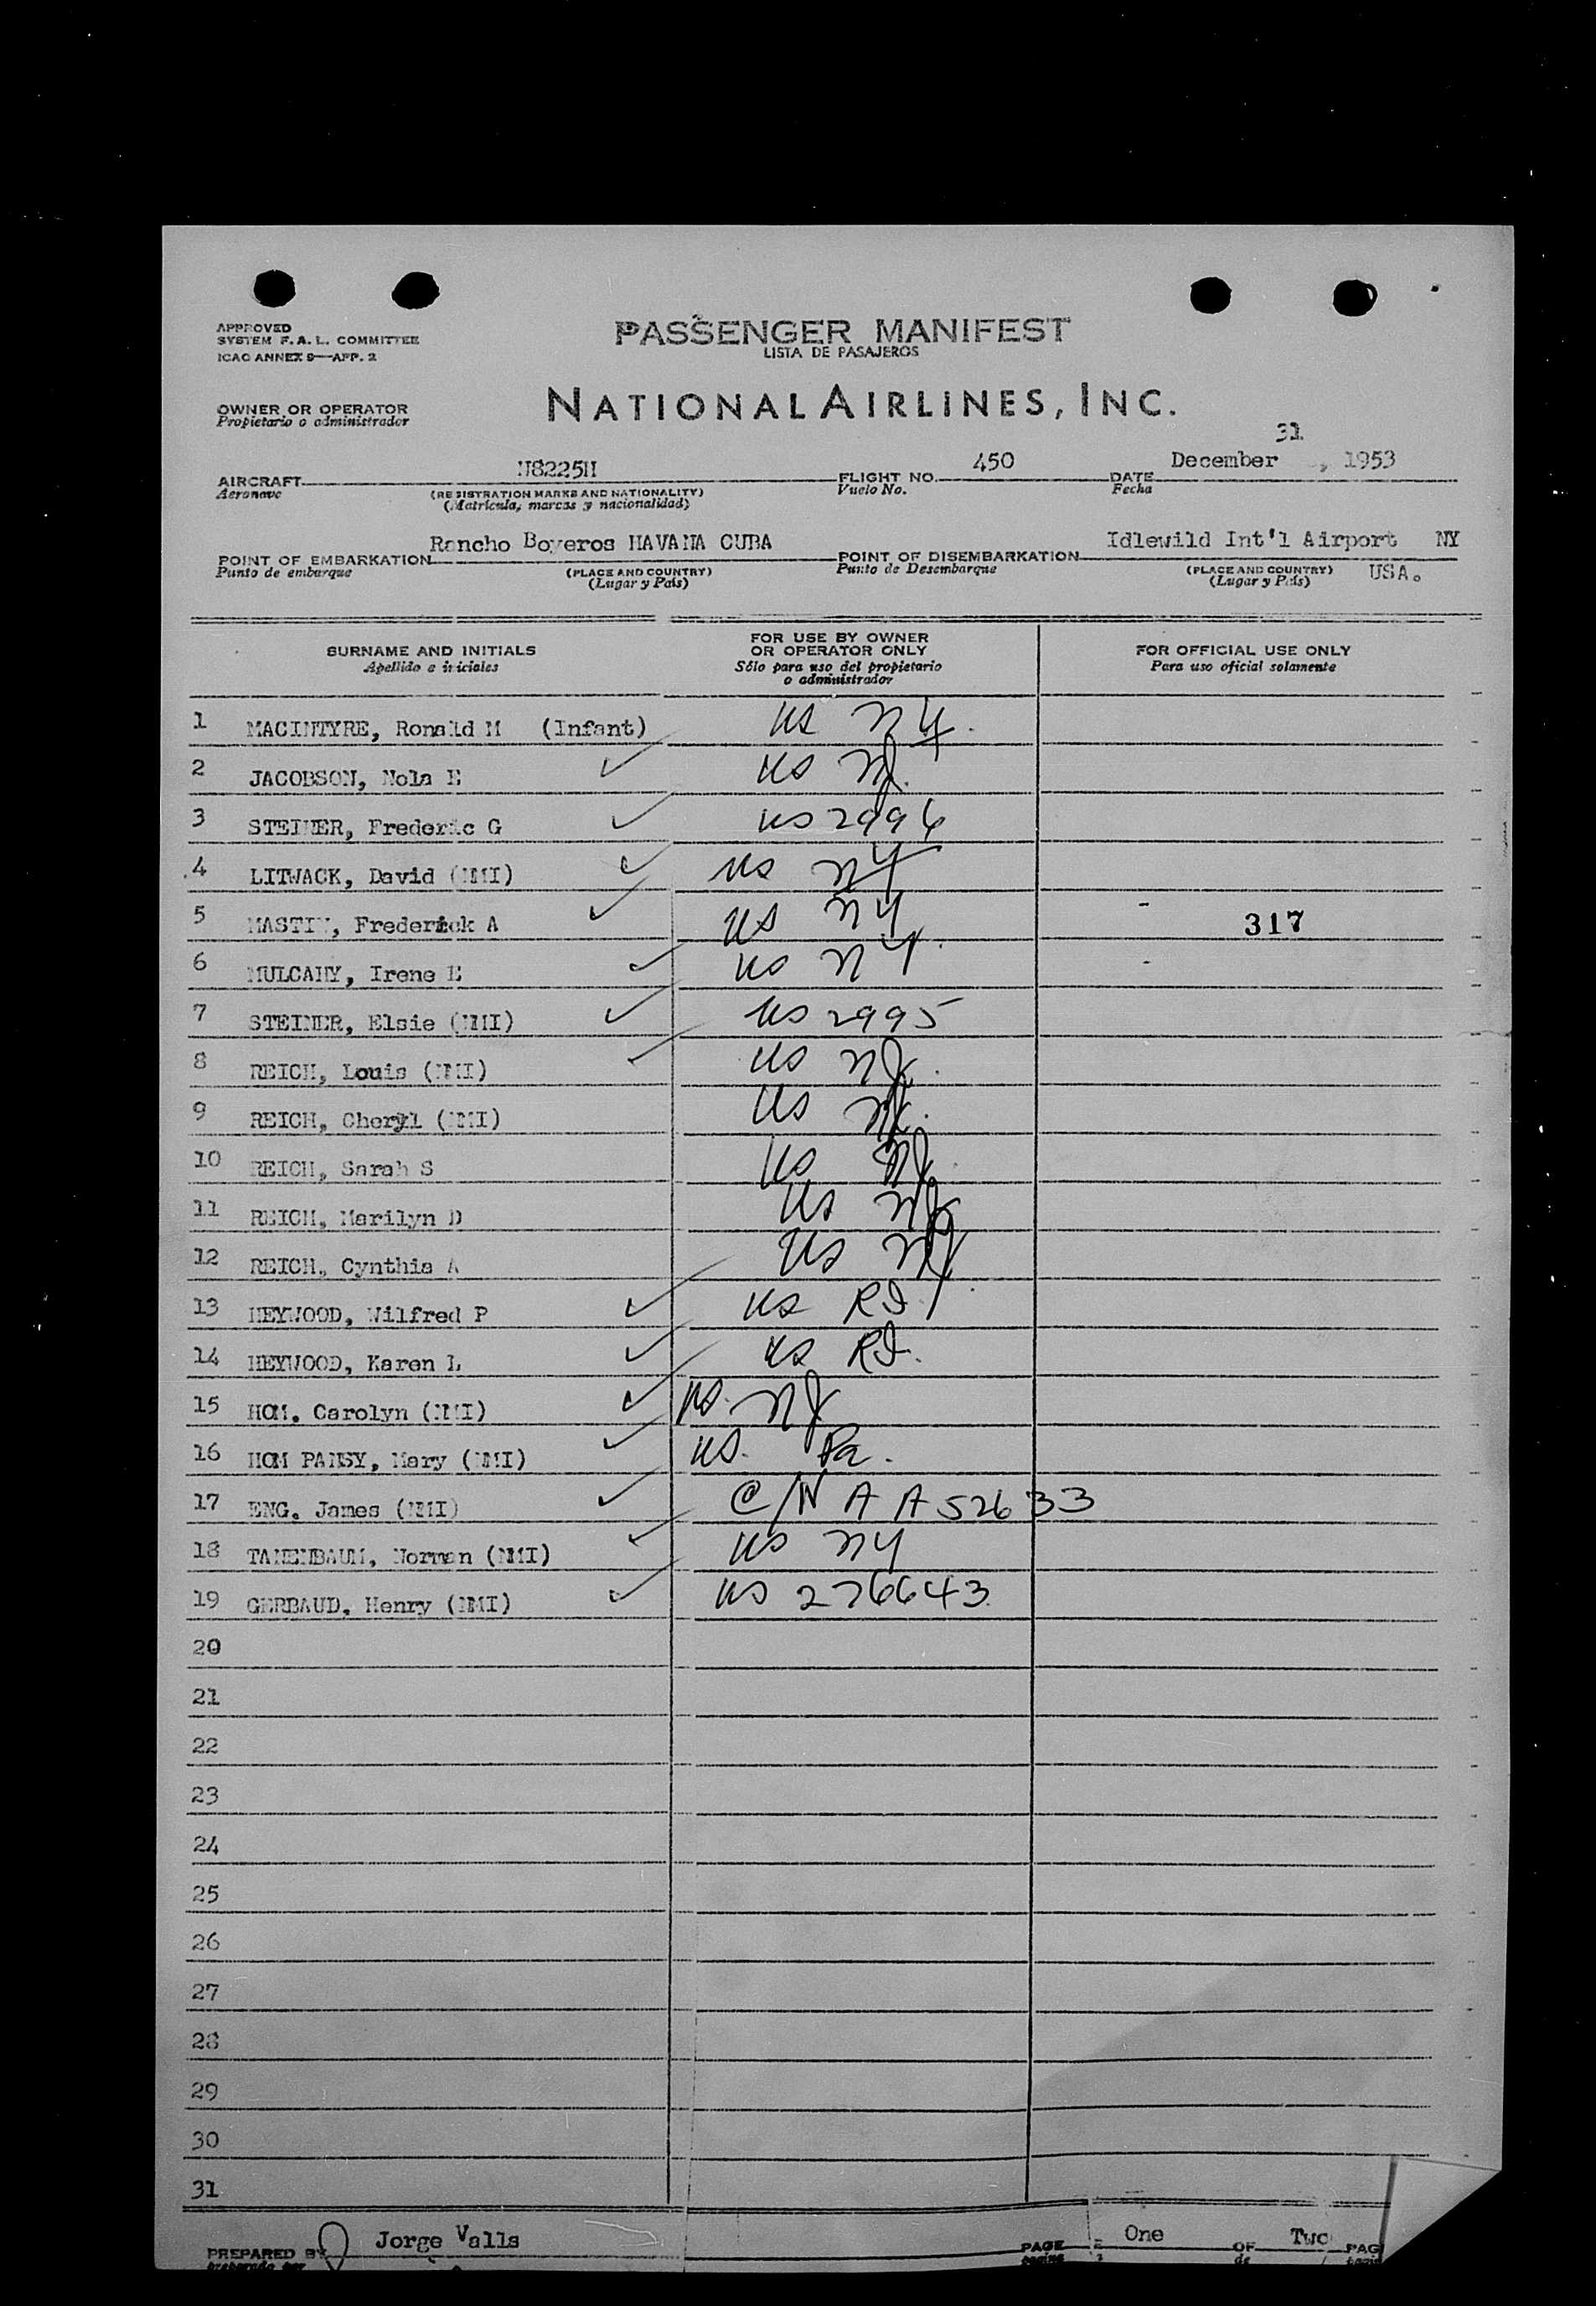 APPROVED
SYSTEM F. A. L. COMMITTEE
ICAO ANNEX 9—APP. 2
PASSENGER MANIFEST
LISTA DE PASAJEROS
OWNER OR OPERATOR
Propietario o administrador
NATIONAL AIRLINES, INC.
31
AIRCRAFT N8225H FLIGHT NO. 450 DATE December , 1953
Aeronave (REGISTRATION MARKS AND NATIONALITY) Vuelo No. Fecha
(Matricula, marcas y nacionalidad)
POINT OF EMBARKATION Rancho Boyeros HAVANA CUBA POINT OF DISEMBARKATION Idlewild Int'l Airport NY
Punto de embarque (PLACE AND COUNTRY) Punto de Desembarque (PLACE AND COUNTRY) USA.
(Lugar y País) (Lugar y País)
SURNAME AND INITIALS FOR USE BY OWNER OR OPERATOR ONLY FOR OFFICIAL USE ONLY
Apellido e iniciales Sólo para uso del propietario o administrador Para uso oficial solamente
1 MACINTYRE, Ronald M (Infant) US NY.
2 JACOBSON, Nola E US NJ.
3 STEINER, Frederic G US 2996
4 LITWACK, David (NMI) US NY
5 MASTIN, Frederick A US NY 317
6 MULCAHY, Irene E US NY.
7 STEINER, Elsie (NMI) US 2995
8 REICH, Louis (NMI) US NJ.
9 REICH, Cheryl (NMI) US NJ.
10 REICH, Sarah S US NJ.
11 REICH, Marilyn D US NJ
12 REICH, Cynthia A US NJ.
13 HEYWOOD, Wilfred P US RI.
14 HEYWOOD, Karen L US RI.
15 HOM. Carolyn (NMI) US. NJ
16 HOM PANSY, Mary (NMI) US. Pa.
17 ENG. James (NMI) C/N A A 52633
18 TANENBAUM, Norman (NMI) US NY
19 GERBAUD, Henry (NMI) US 276643
20
21
22
23
24
25
26
27
28
29
30
31
PREPARED BY Jorge Valls PAGE One OF Two PAG
preparado por pagina de